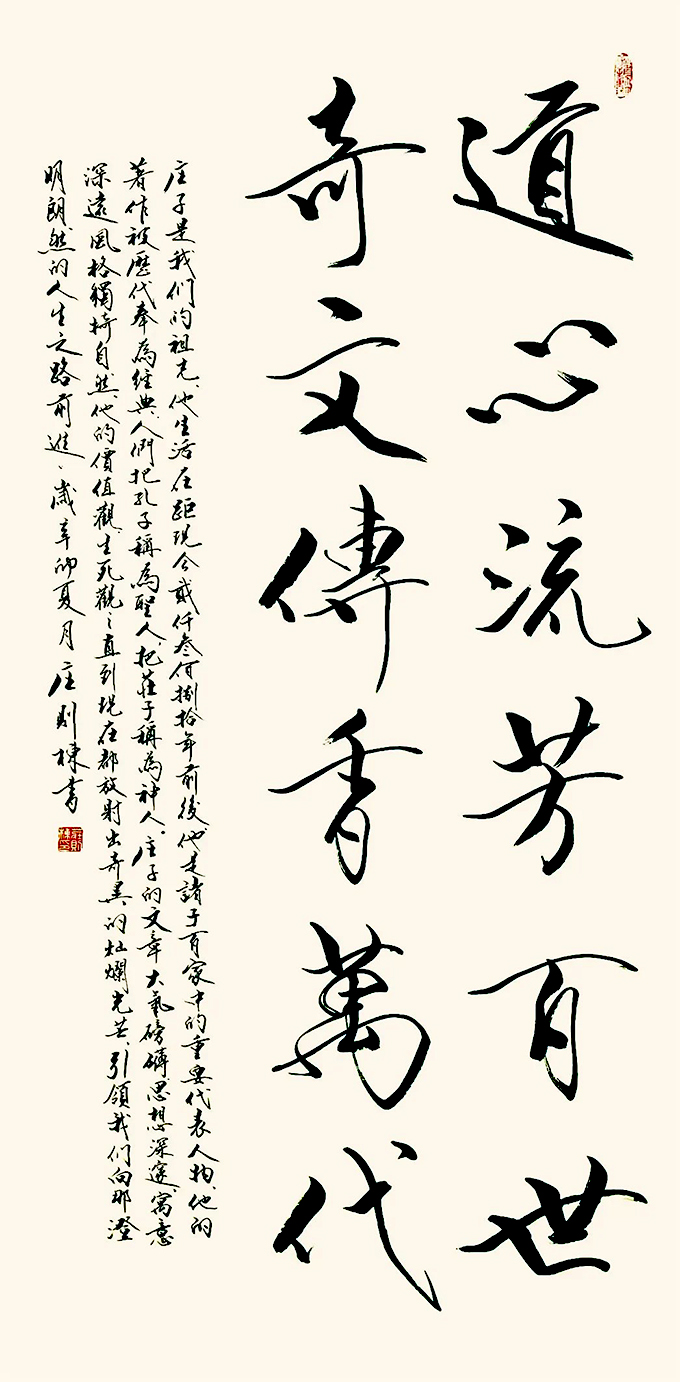 道心流芳百世
奇文傳香萬代
庄子是我们的祖先、他生活在距现今贰仟叁佰捌拾年前後、他是諸子百家中的重要代表人物、他的
著作被歷代奉為經典、人們把孔子稱為聖人、把莊子稱為神人、庄子的文章大氣磅礴、思想深邃、寓意
深遠、風格獨特自然、他的價值觀、生死觀、直到現在都放射出奇異的灿爛光芒、引領我们向那澄
明朗然的人生之路前進、歲辛卯夏月庄则棟書